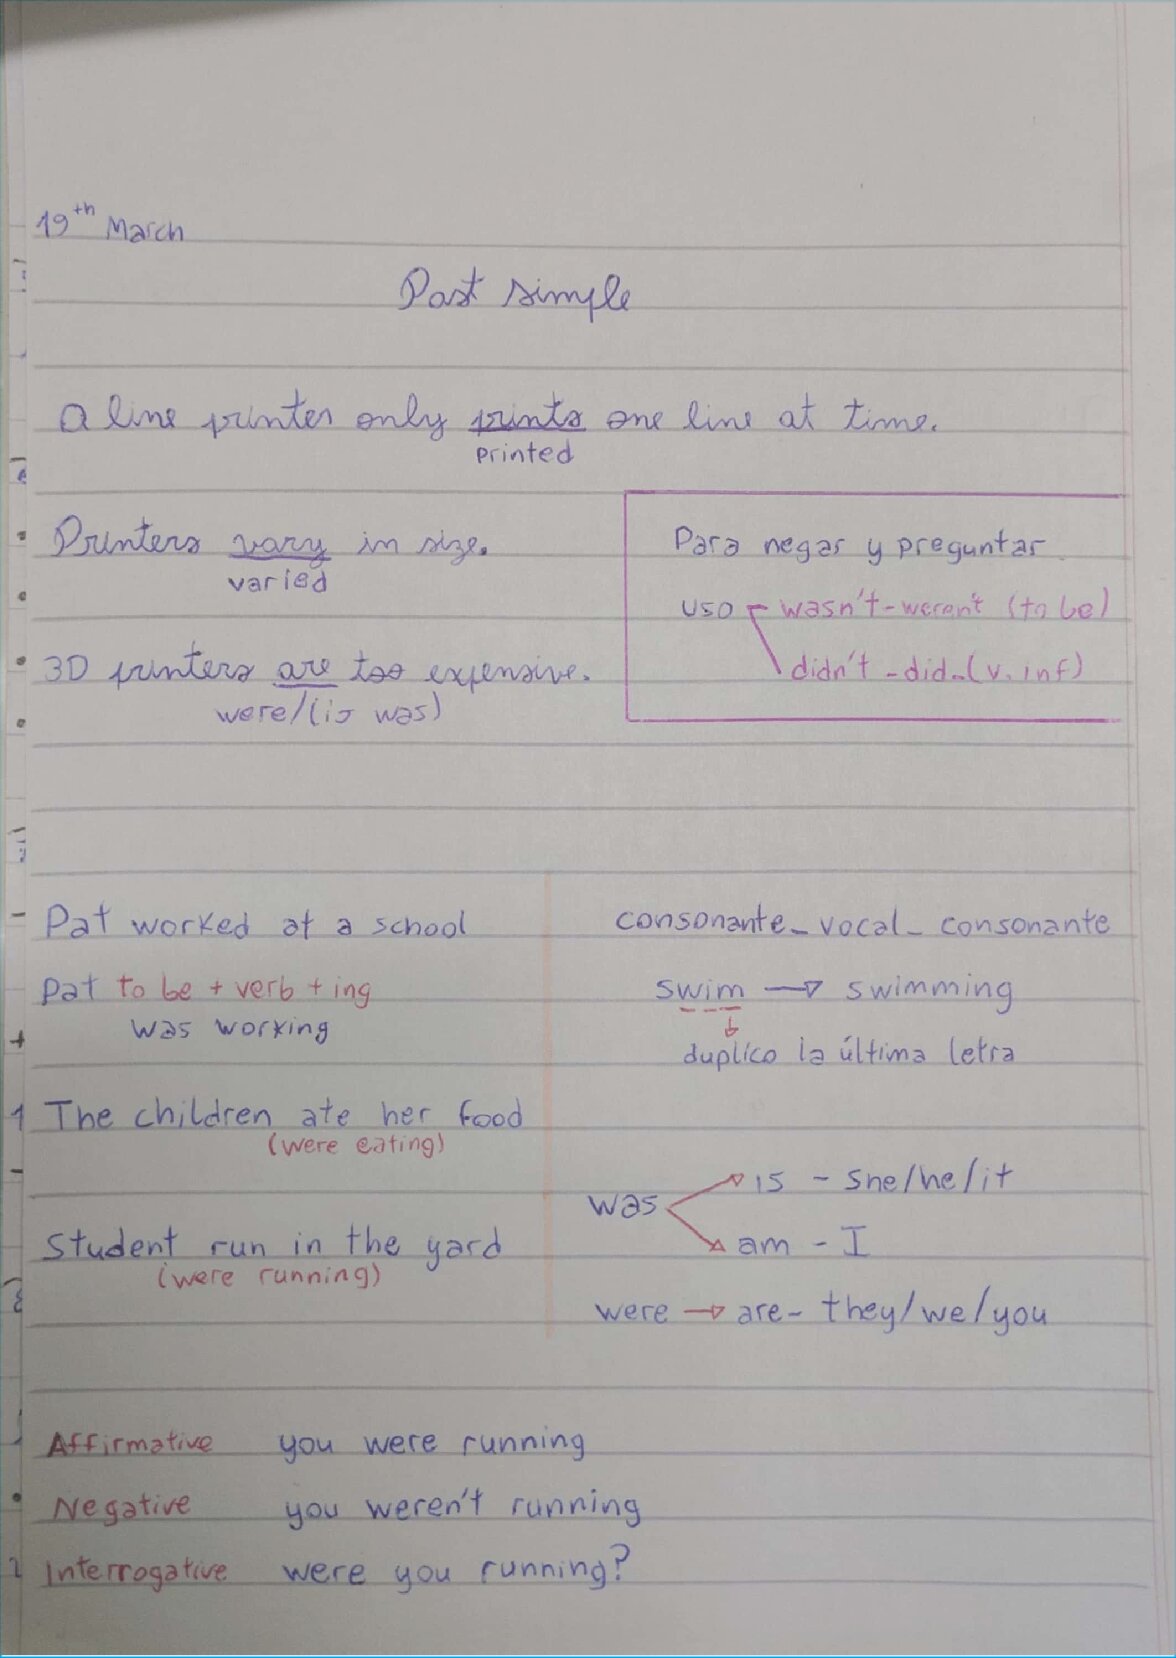 19th March
Past simple
A line printer only prints one line at time.
printed
Printers vary in size.
varied
3D printers are too expensive.
were/(is was)
Para negar y preguntar
uso wasn't-weren't (to be)
didn't - did-(v. inf)
Pat worked at a school
Pat to be + verb + ing
was working
The children ate her food
(were eating)
Student run in the yard
(were running)
consonante_vocal_consonante
swim → swimming
duplico la última letra
was
is - she/he/it
am - I
were → are- they/we/you
Affirmative you were running
Negative you weren't running
Interrogative were you running?